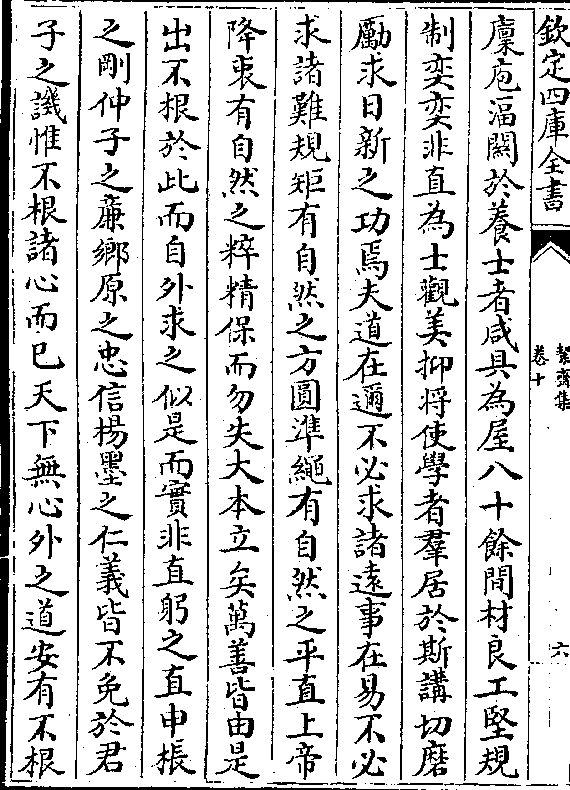 欽定四庫全書
絜齋集
卷十
六
廩庖湢闕於養士者咸具為屋八十餘間材良工堅規
制奕奕非直為士觀美抑將使學者羣居於斯講切磨
勵求日新之功焉夫道在邇不必求諸遠事在易不必
求諸難規矩有自然之方圓準繩有自然之平直上帝
降衷有自然之粹精保而勿失大本立矣萬善皆由是
出不根於此而自外求之似是而實非直躬之直申棖
之剛仲子之廉鄉原之忠信楊墨之仁義皆不免於君
子之譏惟不根諸心而已天下無心外之道安有不根